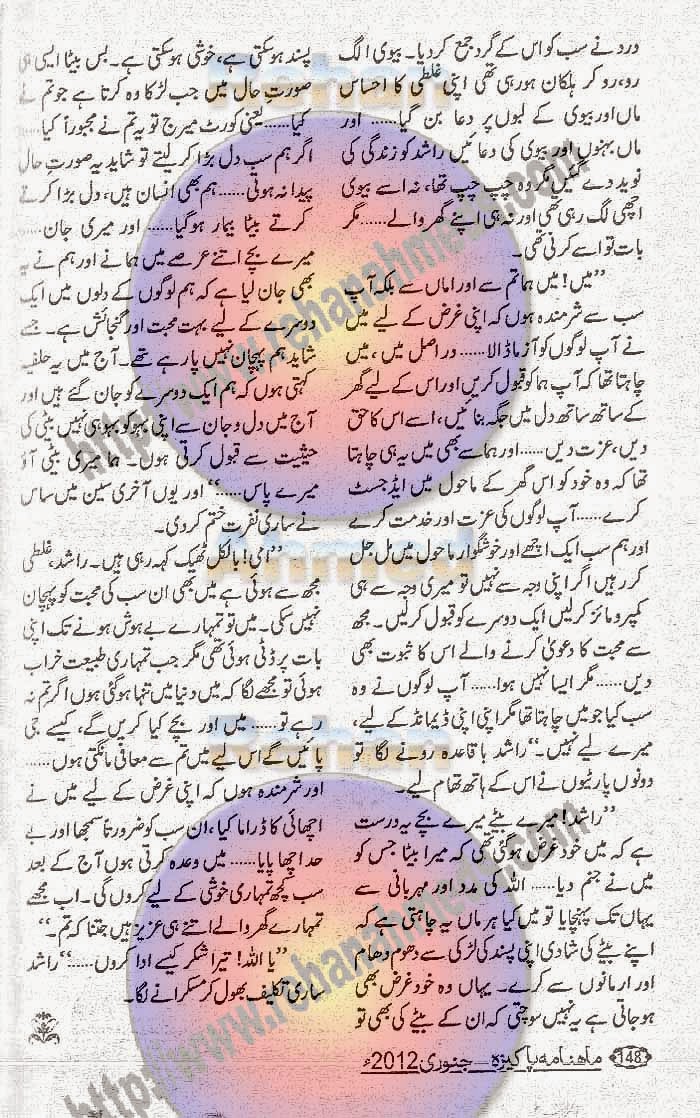 درد نے سب کو اس کے گرد جمع کردیا۔ بیوی الگ
رو، رو کر ہلکان ہورہی تھی اپنی غلطی کا احساس
ماں اور بیوی کے لبوں پر دعا بن گیا...... اور
ماں بہنوں اور بیوی کی دعائیں راشد کو زندگی کی
نوید دے گئیں مگر وہ چپ چپ تھا، نہ اسے بیوی
اچھی لگ رہی تھی اور نہ ہی اپنے گھر والے...... مگر
بات تو اسے کرنی تھی۔
”میں! میں ہما تم سے اور اماں سے بلکہ آپ
سب سے شرمندہ ہوں کہ اپنی غرض کے لیے میں
نے آپ لوگوں کو آزما ڈالا...... دراصل میں، میں
چاہتا تھا کہ آپ ہما کو قبول کریں اور اس کے لیے گھر
کے ساتھ ساتھ دل میں جگہ بنائیں، اسے اس کا حق
دیں، عزت دیں...... اور ہما سے بھی میں یہ ہی چاہتا
تھا کہ وہ خود کو اس گھر کے ماحول میں ایڈجسٹ
کرے...... آپ لوگوں کی عزت اور خدمت کرے
اور ہم سب ایک اچھے اور خوشگوار ماحول میں مل جل
کر رہیں اگر اپنی وجہ سے نہیں تو میری وجہ سے ہی
کمپرومائز کرلیں ایک دوسرے کو قبول کرلیں۔ مجھ
سے محبت کا دعویٰ کرنے والے اس کا ثبوت بھی
دیں...... مگر ایسا نہیں ہوا...... آپ لوگوں نے وہ
سب کیا جو میں چاہتا تھا مگر اپنی اپنی ڈیمانڈ کے لیے،
میرے لیے نہیں۔“ راشد باقاعدہ رونے لگا تو
دونوں پارٹیوں نے اس کے ہاتھ تھام لیے۔
”راشد! میرے بیٹے میرے بچے یہ درست
ہے کہ میں خود غرض ہوگئی تھی کہ میرا بیٹا جس کو
میں نے جنم دیا...... اللہ کی مدد اور مہربانی سے
یہاں تک پہنچایا تو میں کیا ہر ماں یہ چاہتی ہے کہ
اپنے بیٹے کی شادی اپنی پسند کی لڑکی سے دھوم دھام
اور ارمانوں سے کرے۔ یہاں وہ خود غرض بھی
ہوجاتی ہے یہ نہیں سوچتی کہ ان کے بیٹے کی بھی تو
پسند ہوسکتی ہے، خوشی ہوسکتی ہے۔ بس بیٹا ایسی ہی
صورتِ حال میں جب لڑکا وہ کرتا ہے جو تم نے
کیا...... یعنی کورٹ میرج تو یہ تم نے مجبوراً کیا
اگر ہم سب دل بڑا کرلیتے تو شاید یہ صورتِ حال
پیدا نہ ہوتی...... ہم بھی انسان ہیں، دل بڑا کرتے
کرتے بیٹا بیمار ہوگیا...... اور میری جان......
میرے بچے اتنے عرصے میں ہما نے اور ہم نے یہ
بھی جان لیا ہے کہ ہم لوگوں کے دلوں میں ایک
دوسرے کے لیے بہت محبت اور گنجائش ہے۔ جسے
شاید ہم پہچان نہیں پارہے تھے۔ آج میں یہ حلفیہ
کہتی ہوں کہ ہم ایک دوسرے کو جان گئے ہیں اور
آج میں دل و جان سے اپنی بہو کو بہو ہی نہیں بیٹی کی
حیثیت سے قبول کرتی ہوں۔ ہما میری بیٹی آؤ
میرے پاس......“ اور یوں آخری سین میں ساس
نے ساری نفرت ختم کردی۔
”امی! بالکل ٹھیک کہہ رہی ہیں۔ راشد، غلطی
مجھ سے ہوئی ہے میں بھی ان سب کی محبت کو پہچان
نہیں سکی۔ میں تو تمہارے بے ہوش ہونے تک اپنی
بات پر ڈٹی ہوئی تھی مگر جب تمہاری طبیعت خراب
ہوئی تو مجھے لگا کہ میں دنیا میں تنہا ہوگئی ہوں اگر تم نہ
رہے تو...... میں اور بچے کیا کریں گے، کیسے جی
پائیں گے اس لیے میں تم سے معافی مانگتی ہوں......
اور شرمندہ ہوں کہ اپنی غرض کے لیے میں نے
اچھائی کا ڈراما کیا، ان سب کو ضرورتاً سمجھا اور بے
حد اچھا پایا...... میں وعدہ کرتی ہوں آج کے بعد
سب کچھ تمہاری خوشی کے لیے کروں گی۔ اب مجھے
تمہارے گھر والے اتنے ہی عزیز ہیں جتنا کہ تم۔“
”یا اللہ! تیرا شکر کیسے ادا کروں......“ راشد
ساری تکلیف بھول کر مسکرانے لگا۔
148 ماهنامه پاکیزہ جنوری 2012ء
Rehan
Ahmed
Rehan
http://www.rehanahmed.com
http://www.rehanahmed.com